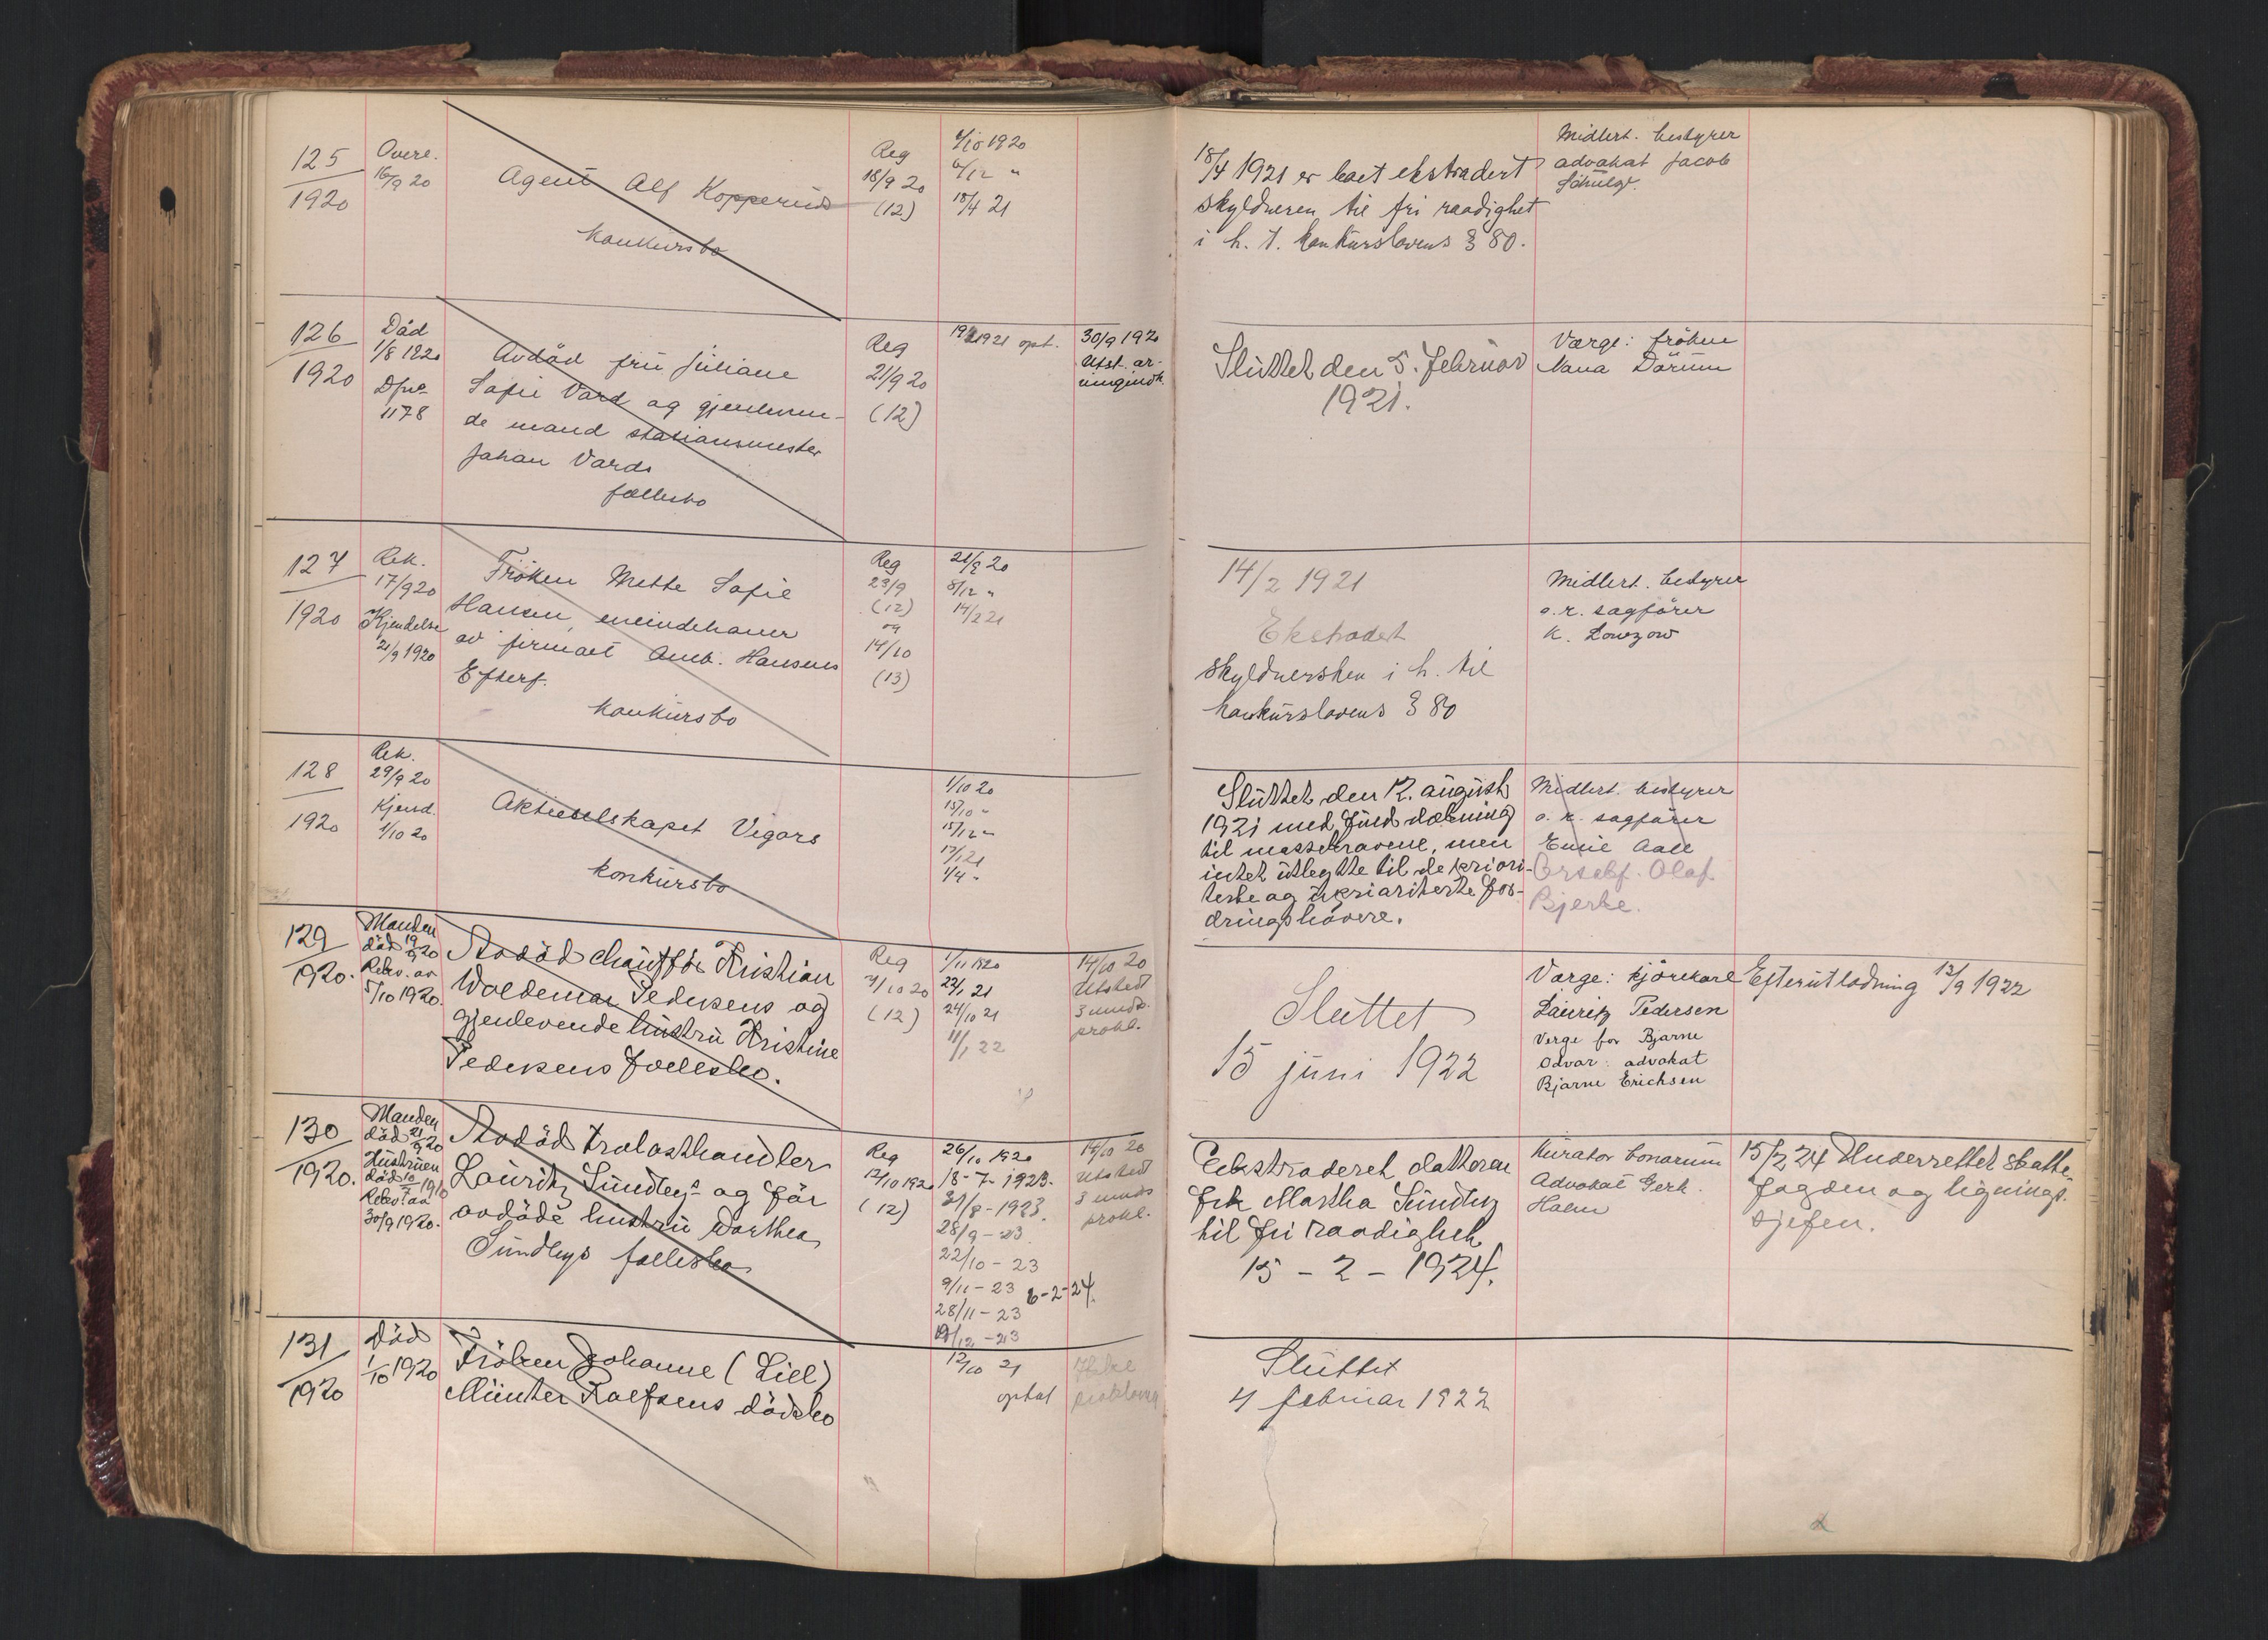 125
1920
Overe.
16/9 20
Agent Alf Kopperuds
konkursbo
Reg
18/9 20
(12)
1/10 1920
6/12 "
18/4 21
18/4 1921 er boet ekstradert
skyldneren til fri raadighet
i h. t. konkurslovens § 80.
Midlert. bestyrer
advokat Jacob
126
1920
Död
1/8 1920
1178
Avdöd fru Juliane
Sofie Vard og gjenleven-
de mand stasionsmester
Johan Vards
fællesbo
Reg
21/9 20
(12)
1921 opt.
30/9 1920
Utst.
Sluttet den 5. februar
1921.
Værge: fröken
Nana Dörum
127
1920
Rek.
17/9 20
Kjendelse
21/9 1920
Fröken Mette Sofie
Hansen, eneindehaver
av firmaet Amb. Hansens
Efterf.
konkursbo
Reg
23/9
(12)
og
14/10
(13)
21/9 20
8/12 "
14/2 21
14/2 1921
Ekstradert
skyldnersken i h. til
konkurslovens § 80
Midlert. bestyrer
o.r. sagförer
K. Lowzow
128
1920
Rek.
29/9 20
Kjend.
1/10 20
Aktieselskapet Vigors
konkursbo
1/10 20
15/10 "
15/12 "
17/1 21
1/4 "
Sluttet den 12. august
1921 med fuld dækning
til massekravene, men
intet utlegtte til de priori-
terte og upriariterte for-
dringshavere.
Midlert. bestyrer
o. r. sagförer
Emil Aall
Orsakf. Olaf
Bjerke.
129
1920.
Manden
död 19/9 20
Rekv. av
5/10 1920.
Avdöd chaufför Kristian
Woldemar Pedersens og
gjenlevende hustru Kristine
Pedersens fællesbo.
Reg
7/10 20
(12)
1/11 1920
22/1 21
24/10 21
11/1 22
14/10 20
Utstedt
3 mnds.
prokl.
Sluttet
15 juni 1922
Værge: kjörekarl
Lauritz Pedersen
Verge for Bjarne
Odvar: advokat
Bjarne Erichsen
Efterutlodning 12/9 1922
130
1920.
Manden
död 21/9 20
Hustruen
död 10/7 1910
Rekv. av
30/9 1920.
Avdöd trælasthandler
Lauritz Sundbys og för
avdöde hustru Dorthea
Sundbys fællesbo
Reg
12/10 1920
(12)
26/10 1920
18-7-1923.
31/8-1923.
28/9-23
22/10-23
9/11-23 6-2-24.
28/11-23
19/12-23
14/10 20
Utstedt
3 mnds
prokl.
Ekstraderet datteren
frk Martha Sundby
til fri raadighet
15-2-1924.
Kurator bonorum
Advokat Gerh.
Holm
15/2 24 Underrettet skatte-
fogden og lignings-
sjefen.
131
1920
Död
1/10 1920
Fröken Johanne (Lill)
Münter Rolfsens dödsbo
12/10 21
optat
Sluttet
4 februar 1922